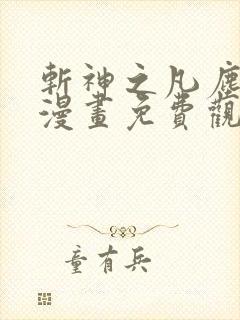 斬神之凡塵
漫畫免費觀
童有兵